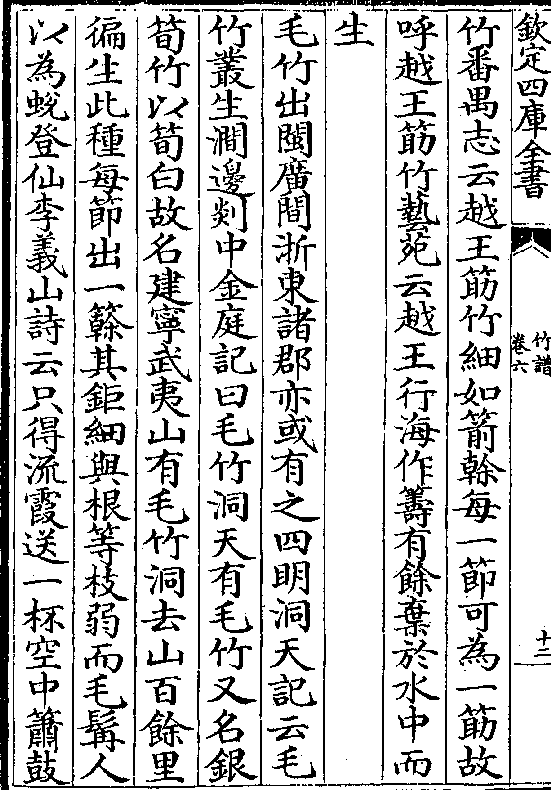 欽定四庫全書
竹譜
卷六
十二
竹番禺志云越王筯竹細如箭簳每一節可為一筯故
呼越王筯竹藝苑云越王行海作籌有餘棄於水中而
生
毛竹出閩廣間浙東諸郡亦或有之四明洞天記云毛
竹叢生澗邊剡中金庭記曰毛竹洞天有毛竹又名銀
筍竹以筍白故名建寧武夷山有毛竹洞去山百餘里
徧生此種每節出一簳其鉅細與根等枝弱而毛髯人
以為蛻登仙李義山詩云只得流霞送一杯空中簫鼓